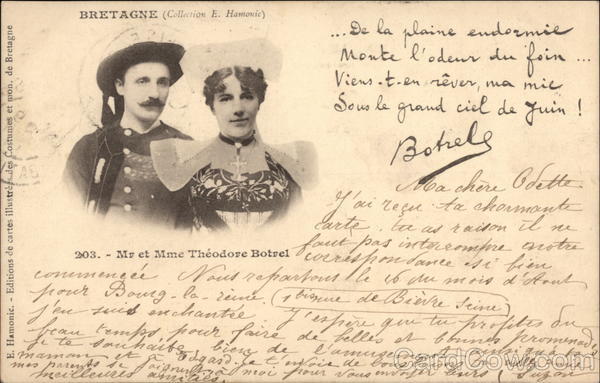 BRETAGNE (Collection E. Hamonic)
E. Hamonic. - Editions de cartes illustrées des Costumes et mon. de Bretagne
...De la plaine endormie
Monte l'odeur du foin ...
Viens-t-en rêver, ma mie
Sous le grand ciel de Juin !
Botrel
203. - Mr et Mme Théodore Botrel
Ma chère Odette
J'ai reçu ta charmante
carte. tu as raison il ne
faut pas interrompre notre
correspondance si bien
commencée Nous repartons le 16 du mois d'Aout
pour Bourg-la-reine. (1 bis rue de Bièvre Seine)
j'en suis enchantée. J'espère que tu profites du
beau temps pour faire de belles et bonnes promenades
je te souhaite bien de l'amusement
maman et à Edgard. Je t'envoie de
mes parents se joignent à moi pour vous envoyer leurs
meilleures amitiés. Suzon
CardCow.com